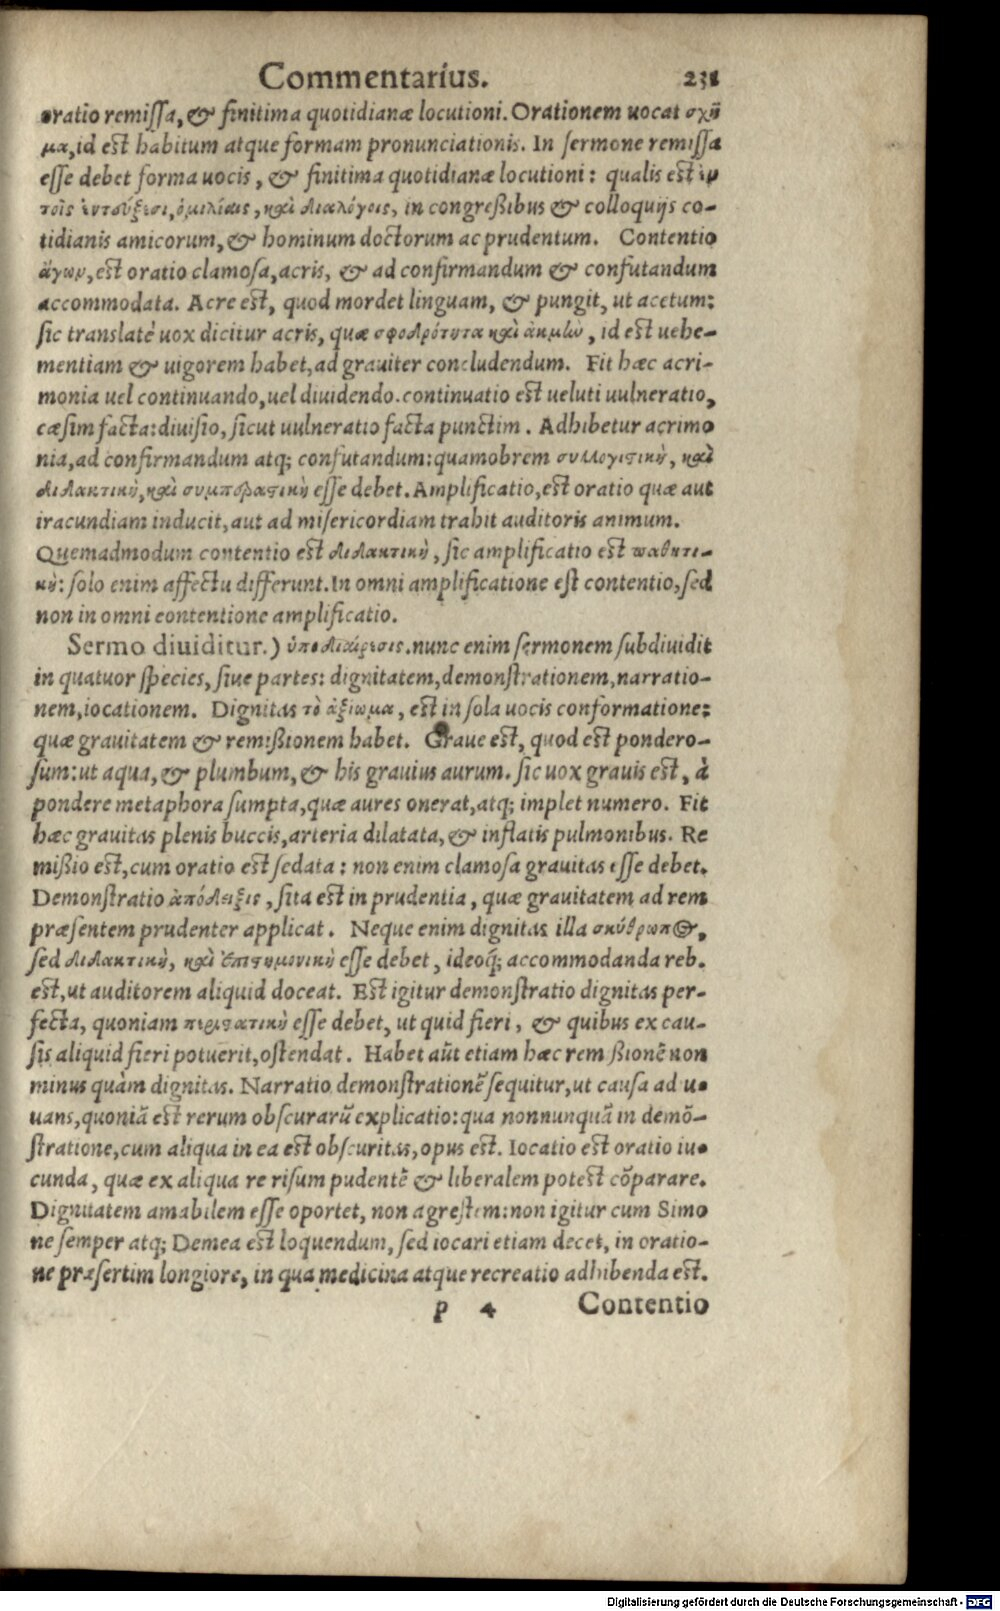 Commentarius. 231
oratio remissa, & finitima quotidianæ locutioni. Orationem uocat σχῆ
μα, id est habitum atque formam pronunciationis. In sermone remissa
esse debet forma uocis, & finitima quotidianæ locutioni: qualis est ἐν
τοῖς ἐντεύξεσι, ὁμιλίαις, καὶ διαλόγοις, in congreßibus & colloquijs co-
tidianis amicorum, & hominum doctorum ac prudentum. Contentio
ἄγων, est oratio clamosa, acris, & ad confirmandum & confutandum
accommodata. Acre est, quod mordet linguam, & pungit, ut acetum:
sic translatè uox dicitur acris, quæ σφοδρότητα καὶ ἀκμὼ, id est uehe-
mentiam & uigorem habet, ad grauiter concludendum. Fit hæc acri-
monia uel continuando, uel diuidendo. continuatio est ueluti uulneratio,
cæsim facta: diuisio, sicut uulneratio facta punctim. Adhibetur acrimo
nia, ad confirmandum atq; confutandum: quamobrem συλλογιστικὴ, καὶ
διδακτικὴ, καὶ συμπερασικὴ esse debet. Amplificatio, est oratio quæ aut
iracundiam inducit, aut ad misericordiam trahit auditoris animum.
Quemadmodum contentio est διδακτικὴ, sic amplificatio est παθητι-
κὴ: solo enim affectu differunt. In omni amplificatione est contentio, sed
non in omni contentione amplificatio.
Sermo diuiditur.) ὑποδιαίρεσις. nunc enim sermonem subdiuidit
in quatuor species, siue partes: dignitatem, demonstrationem, narratio-
nem, iocationem. Dignitas τὸ ἀξίωμα, est in sola uocis conformatione:
quæ grauitatem & remißionem habet. Graue est, quod est pondero-
sum: ut aqua, & plumbum, & his grauius aurum. sic uox grauis est, à
pondere metaphora sumpta, quæ aures onerat, atq; implet numero. Fit
hæc grauitas plenis buccis, arteria dilatata, & inflatis pulmonibus. Re
mißio est, cum oratio est sedata: non enim clamosa grauitas esse debet.
Demonstratio ἀπόδειξις, sita est in prudentia, quæ grauitatem ad rem
præsentem prudenter applicat. Neque enim dignitas illa σκύθρωπος,
sed διδακτικὴ, καὶ ἐπιστημονικὴ esse debet, ideoq́; accommodanda reb.
est, ut auditorem aliquid doceat. Est igitur demonstratio dignitas per-
fecta, quoniam esse debet, ut quid fieri, & quibus ex cau-
sis aliquid fieri potuerit, ostendat. Habet aũt etiam hæc rem ßionẽ non
minus quàm dignitas. Narratio demonstrationẽ sequitur, ut causa ad u
uans, quoniã est rerum obscurarũ explicatio: qua nonnunquã in demõ-
stratione, cum aliqua in ea est obscuritas, opus est. Iocatio est oratio iu
cunda, quæ ex aliqua re risum pudentẽ & liberalem potest cõparare.
Dignitatem amabilem esse oportet, non agrestem: non igitur cum Simo
ne semper atq; Demea est loquendum, sed iocari etiam decet, in oratio-
ne præsertim longiore, in qua medicina atque recreatio adhibenda est.
p 4 Contentio
Digitalisierung gefördert durch die Deutsche Forschungsgemeinschaft - DFG